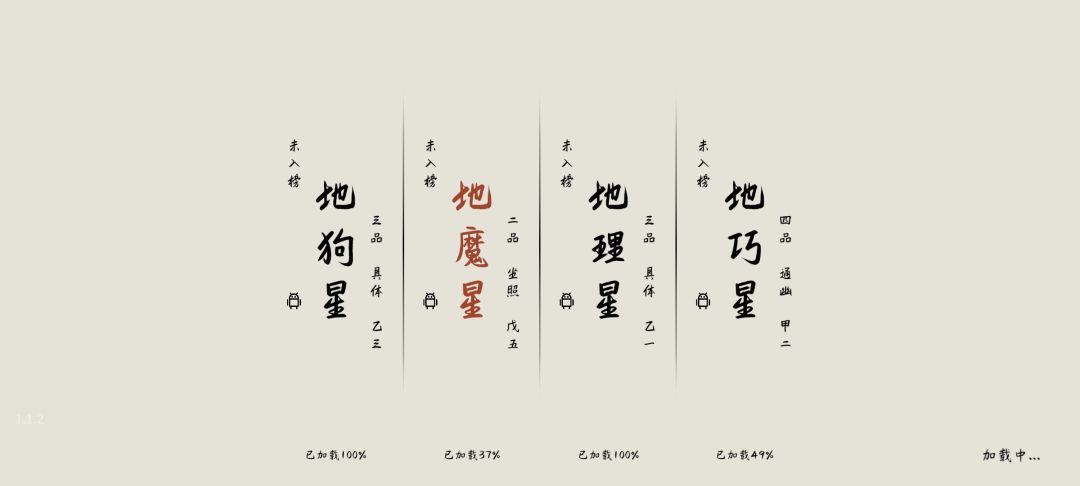 未入榜
地狗星
三品 具体 乙三
未入榜
地魔星
二品 坐照 戊五
未入榜
地理星
三品 具体 乙一
未入榜
地巧星
四品 通幽 甲二
1.1.2
已加载100%
已加载37%
已加载100%
已加载49%
加载中...